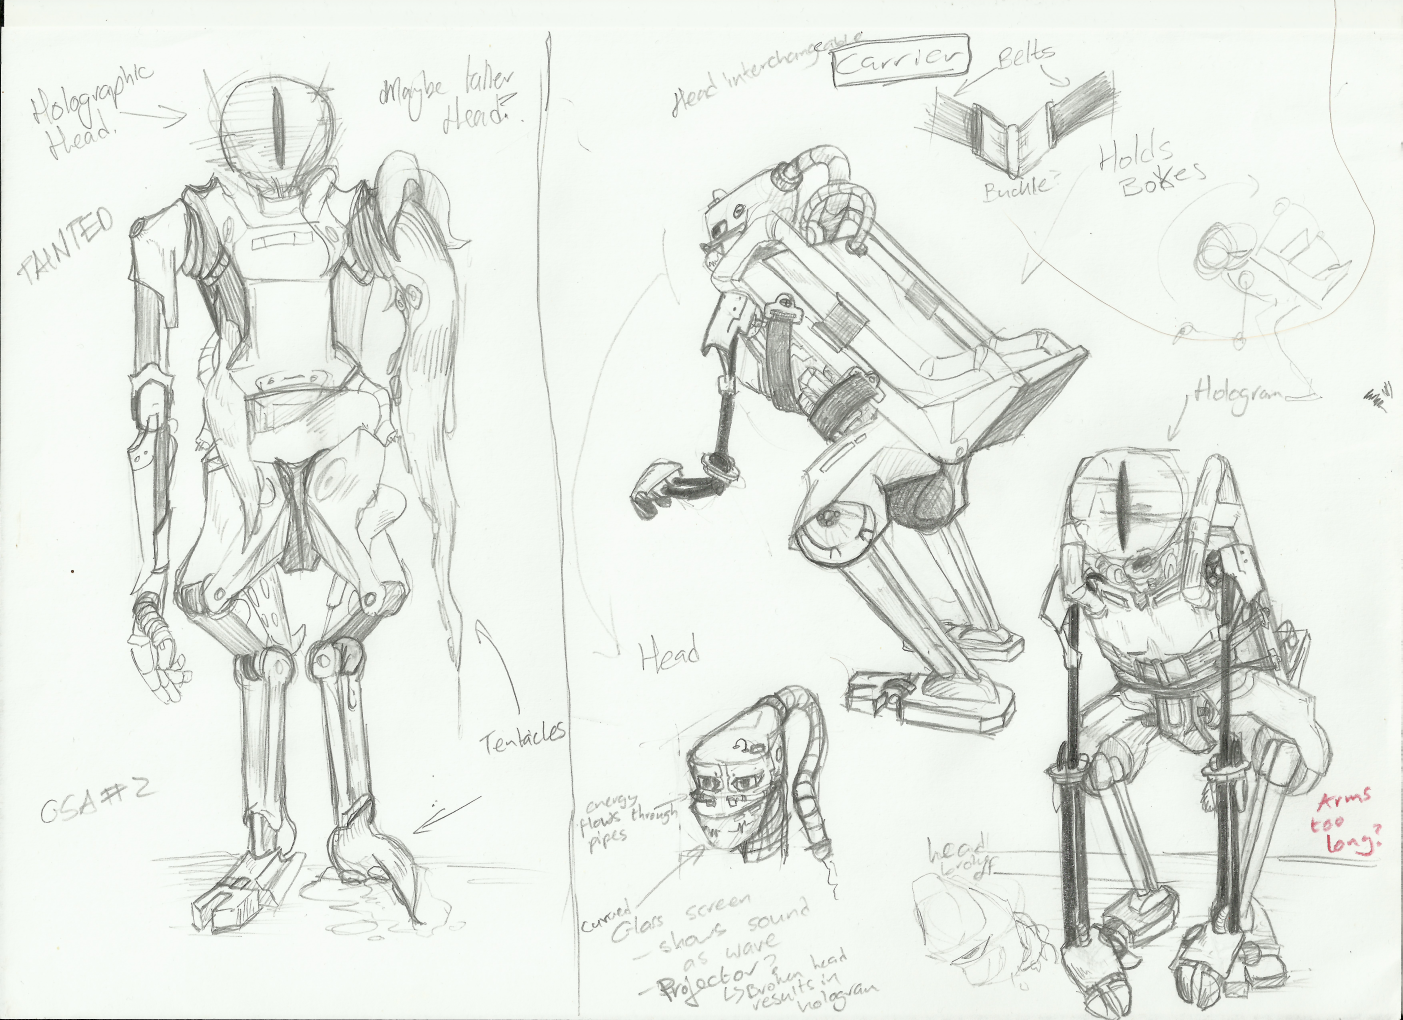 Holographic
Head.
Maybe taller
Head?
TAINTED
GSA#2
Tentacles
Head Interchangeable
Carrier
Belts
Buckle?
Holds
Boxes
Hologram
Head
energy
flows through
pipes
curved
Glass screen
- shows sound
as wave
- Projector?
↳ Broken head
results in
hologram
head
Arms
too
long?